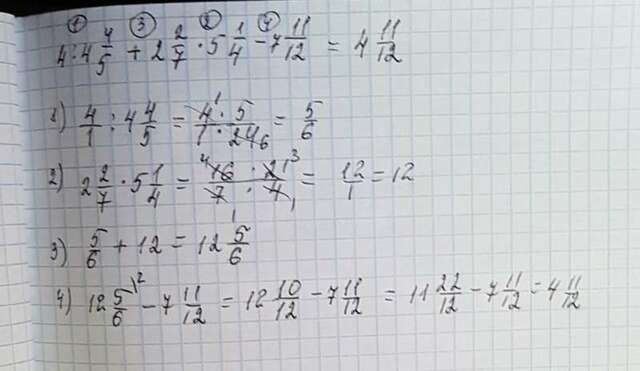 ① ③ ② ④
4 : 4 4/5 + 2 2/7 · 5 1/4 - 7 11/12 = 4 11/12
1) 4/1 : 4 4/5 = 4¹ · 5 / 1 · 24₆ = 5/6
2) 2 2/7 · 5 1/4 = ⁴16 · 21³ / ₁7 · 4₁ = 12/1 = 12
3) 5/6 + 12 = 12 5/6
4) 12 5/6 \² - 7 11/12 = 12 10/12 - 7 11/12 = 11 22/12 - 7 11/12 = 4 11/12